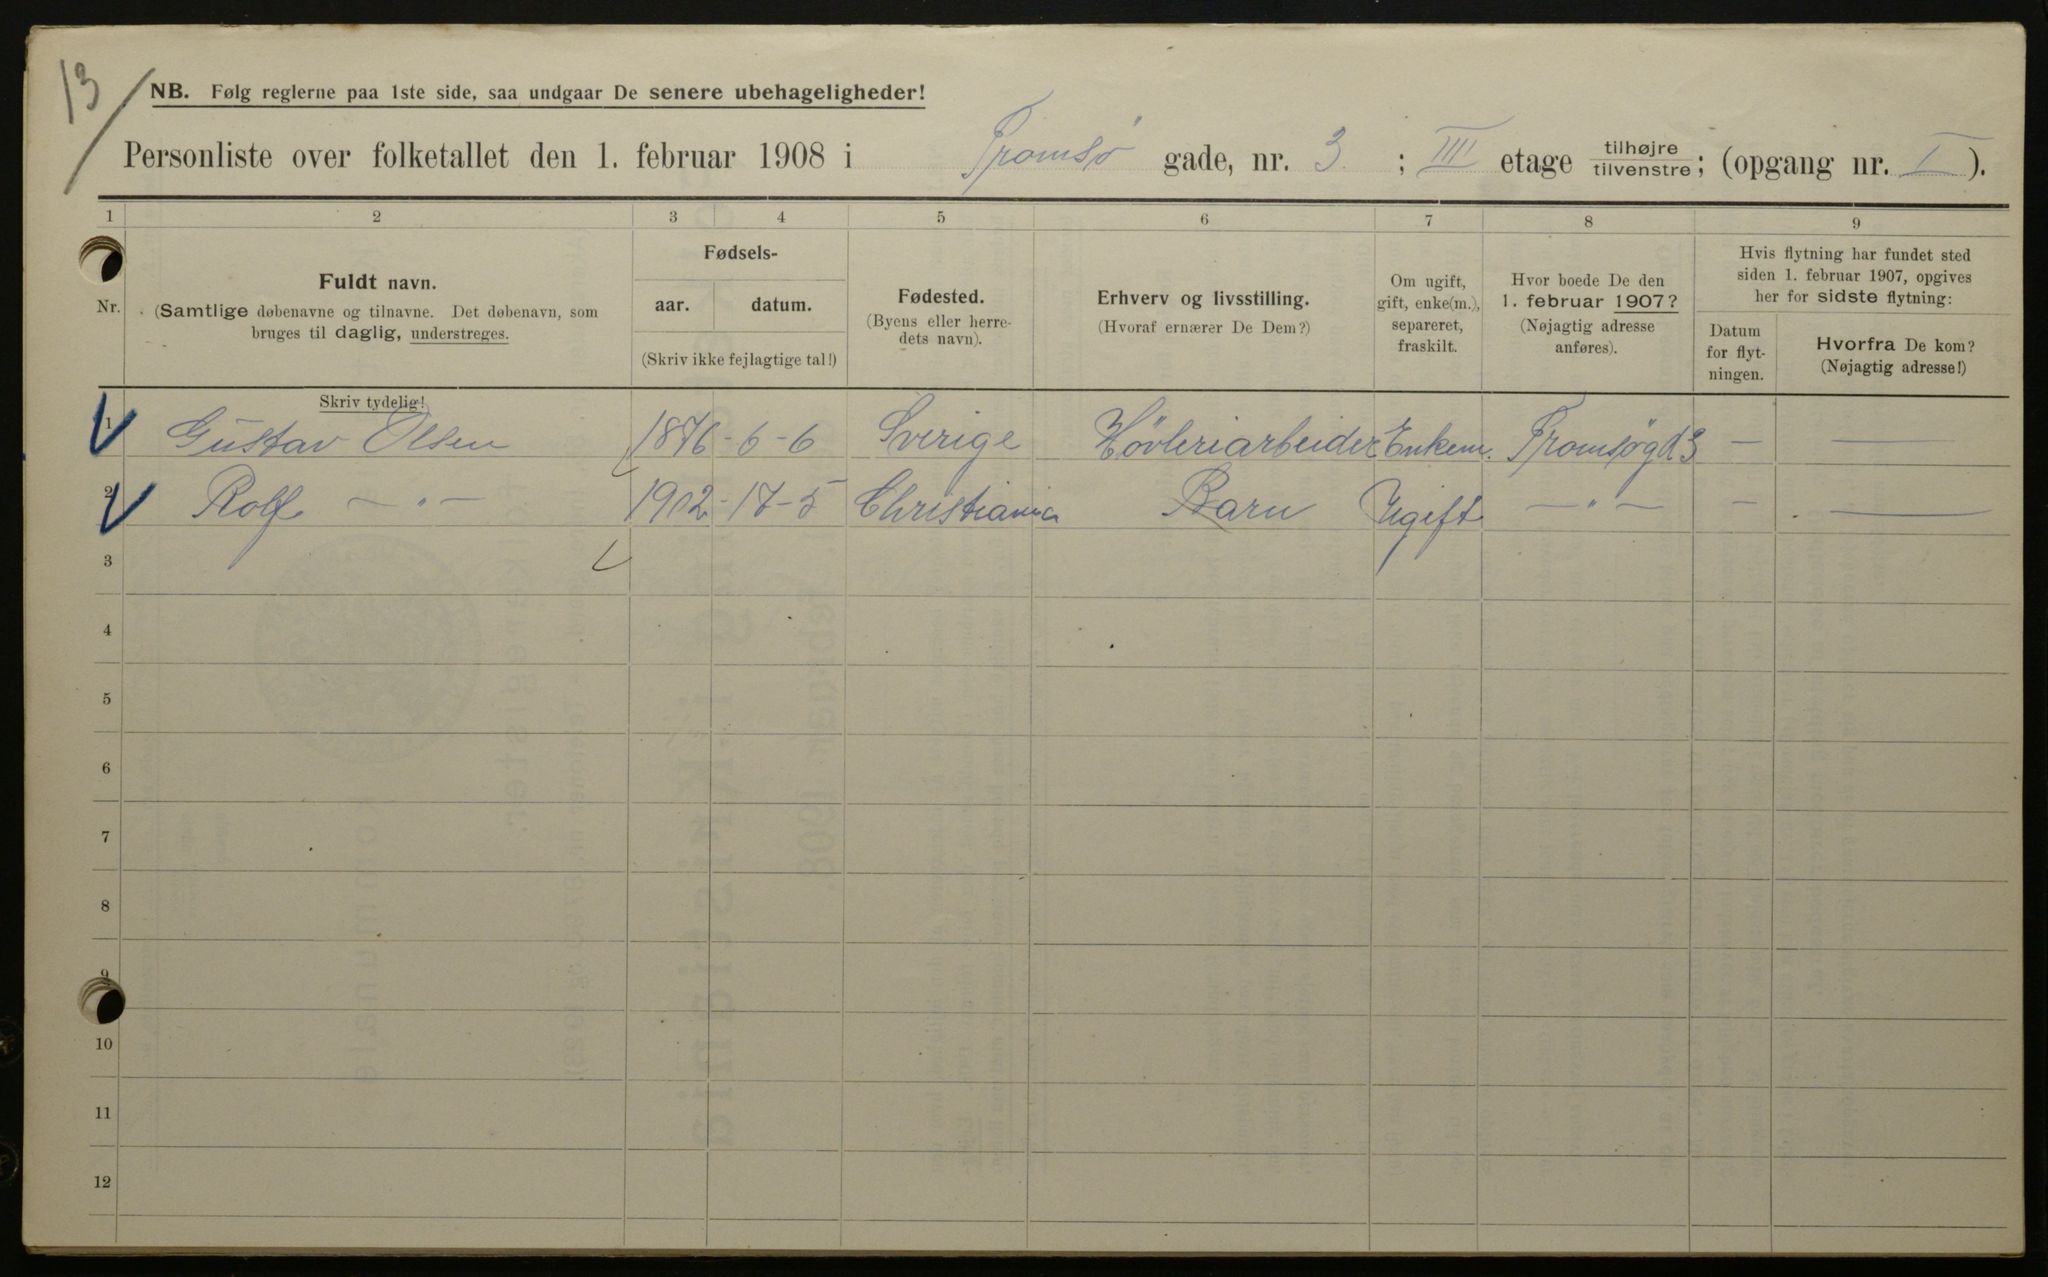 13
NB. Følg reglerne paa 1ste side, saa undgaar De senere ubehageligheder!
Personliste over folketallet den 1. februar 1908 i Tromsø gade, nr. 3 ; III etage tilhøjre tilvenstre; (opgang nr. I).
1 2 3 4 5 6 7 8 9
Nr.
Fuldt navn.
(Samtlige døbenavne og tilnavne. Det døbenavn, som
bruges til daglig, understreges.
Fødsels-
aar. datum.
(Skriv ikke fejlagtige tal!)
Fødested.
(Byens eller herre-
dets navn).
Erhverv og livsstilling.
(Hvoraf ernærer De Dem?)
Om ugift,
gift, enke(m.),
separeret,
fraskilt.
Hvor boede De den
1. februar 1907?
(Nøjagtig adresse
anføres).
Hvis flytning har fundet sted
siden 1. februar 1907, opgives
her for sidste flytning:
Datum
for flyt-
ningen.
Hvorfra De kom?
(Nøjagtig adresse!)
Skriv tydelig!
1 Gustav Olsen 1876 - 6 - 6 Sverige Hövleriarbeider Enkem. Tromsøgd 3 — —
2 Rolf — " — 1902 - 17 - 5 Christiania Barn Ugift — " — — —
3
4
5
6
7
8
9
10
11
12